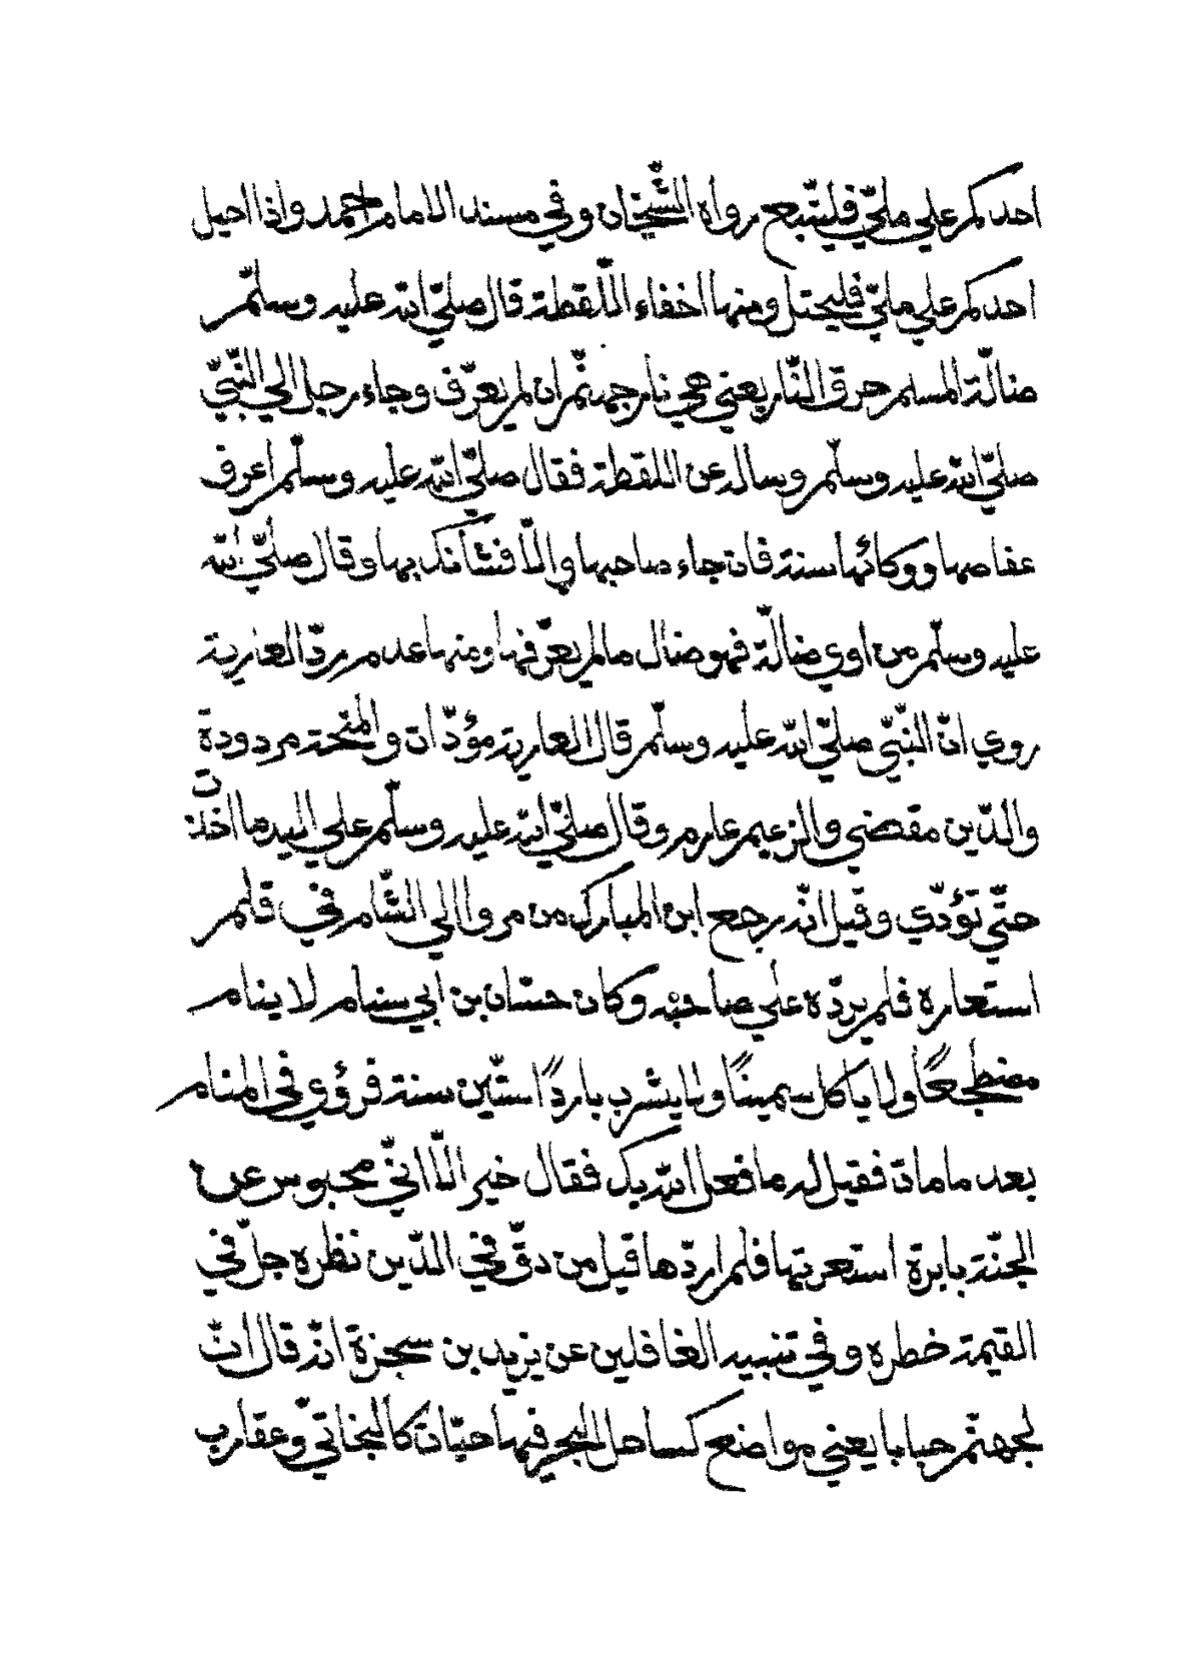 احدكم علي مليّ فليتّبع رواه الشّيخان وفي مسند الامام احمد واذا احيل
احدكم علي مليّ فليحتل ومنها اخفاء اللّقطة قال صليّ اللّه عليه وسلّم
ضالّة المسلم حرق النّار يعني هي نار جهنّم ان لم يعرّف وجاء رجل الي النّبيّ
صليّ اللّه عليه وسلّم وساله عن اللقطة فقال صليّ اللّه عليه وسلّم اعرف
عفاصها ووكائها سنة فان جاء صاحبها والّا فشأنك بها وقال صليّ اللّه
عليه وسلّم من اوي ضالّة فهو ضال مالم يعرّفها ومنها عدم ردّ العارية
روي انّ النّبيّ صليّ اللّه عليه وسلّم قال العارية مؤدّاة والمنحة مردودة
والدّين مقضي والزعيم غارم وقال صليّ اللّه عليه وسلّم علي اليد ما اخذت
حتّي تؤدّي وقيل انّه رجع ابن المبارك من مرو الي الشّام في قلم
استعاره فلم يردّه علي صاحبه وكان حسّان بن ابي سنام لا ينام
مضطجعًا ولا ياكل سمينًا ولا يشرب باردًا ستّين سنة فرؤي في المنام
بعد ما مات فقيل له ما فعل اللّه بك فقال خير الّا انّي محبوس عن
الجنّة بابرة استعرتها فلم اردّها قيل من دقّ في الدّين نظره جلّ في
القيمة خطره وفي تنبيه الغافلين عن يزيد بن سجزة انّه قال انّ
لجهنّم جبابا يعني مواضع كساحل البحر فيها حيّات كالبخاتيّ وعقارب